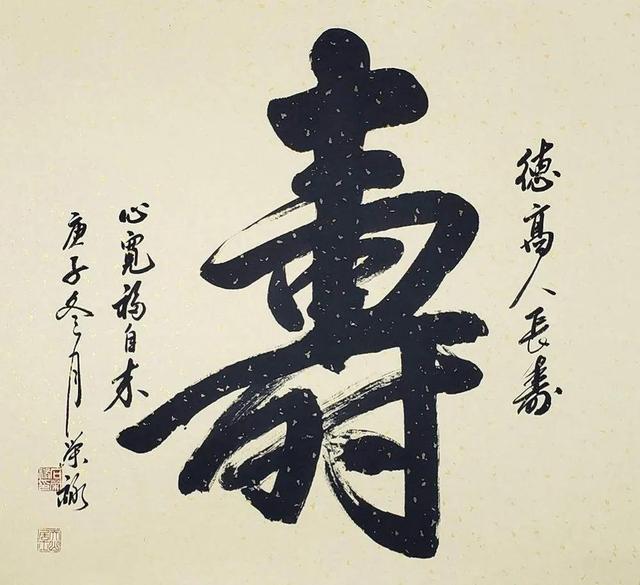 德高人長壽
壽
心寬福自来
庚子冬月